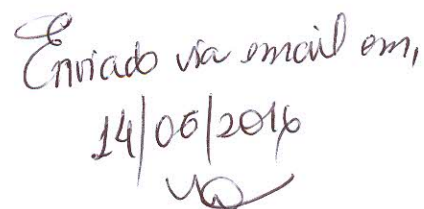 Enviado via email em,
14/06/2016